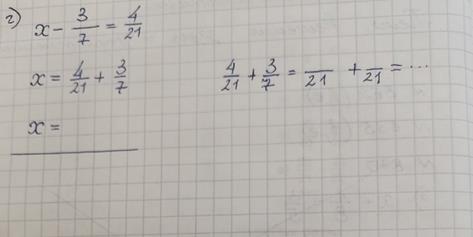 г) x - 3/7 = 4/21
x = 4/21 + 3/7
4/21 + 3/7 = /21 + /21 = ...
x =